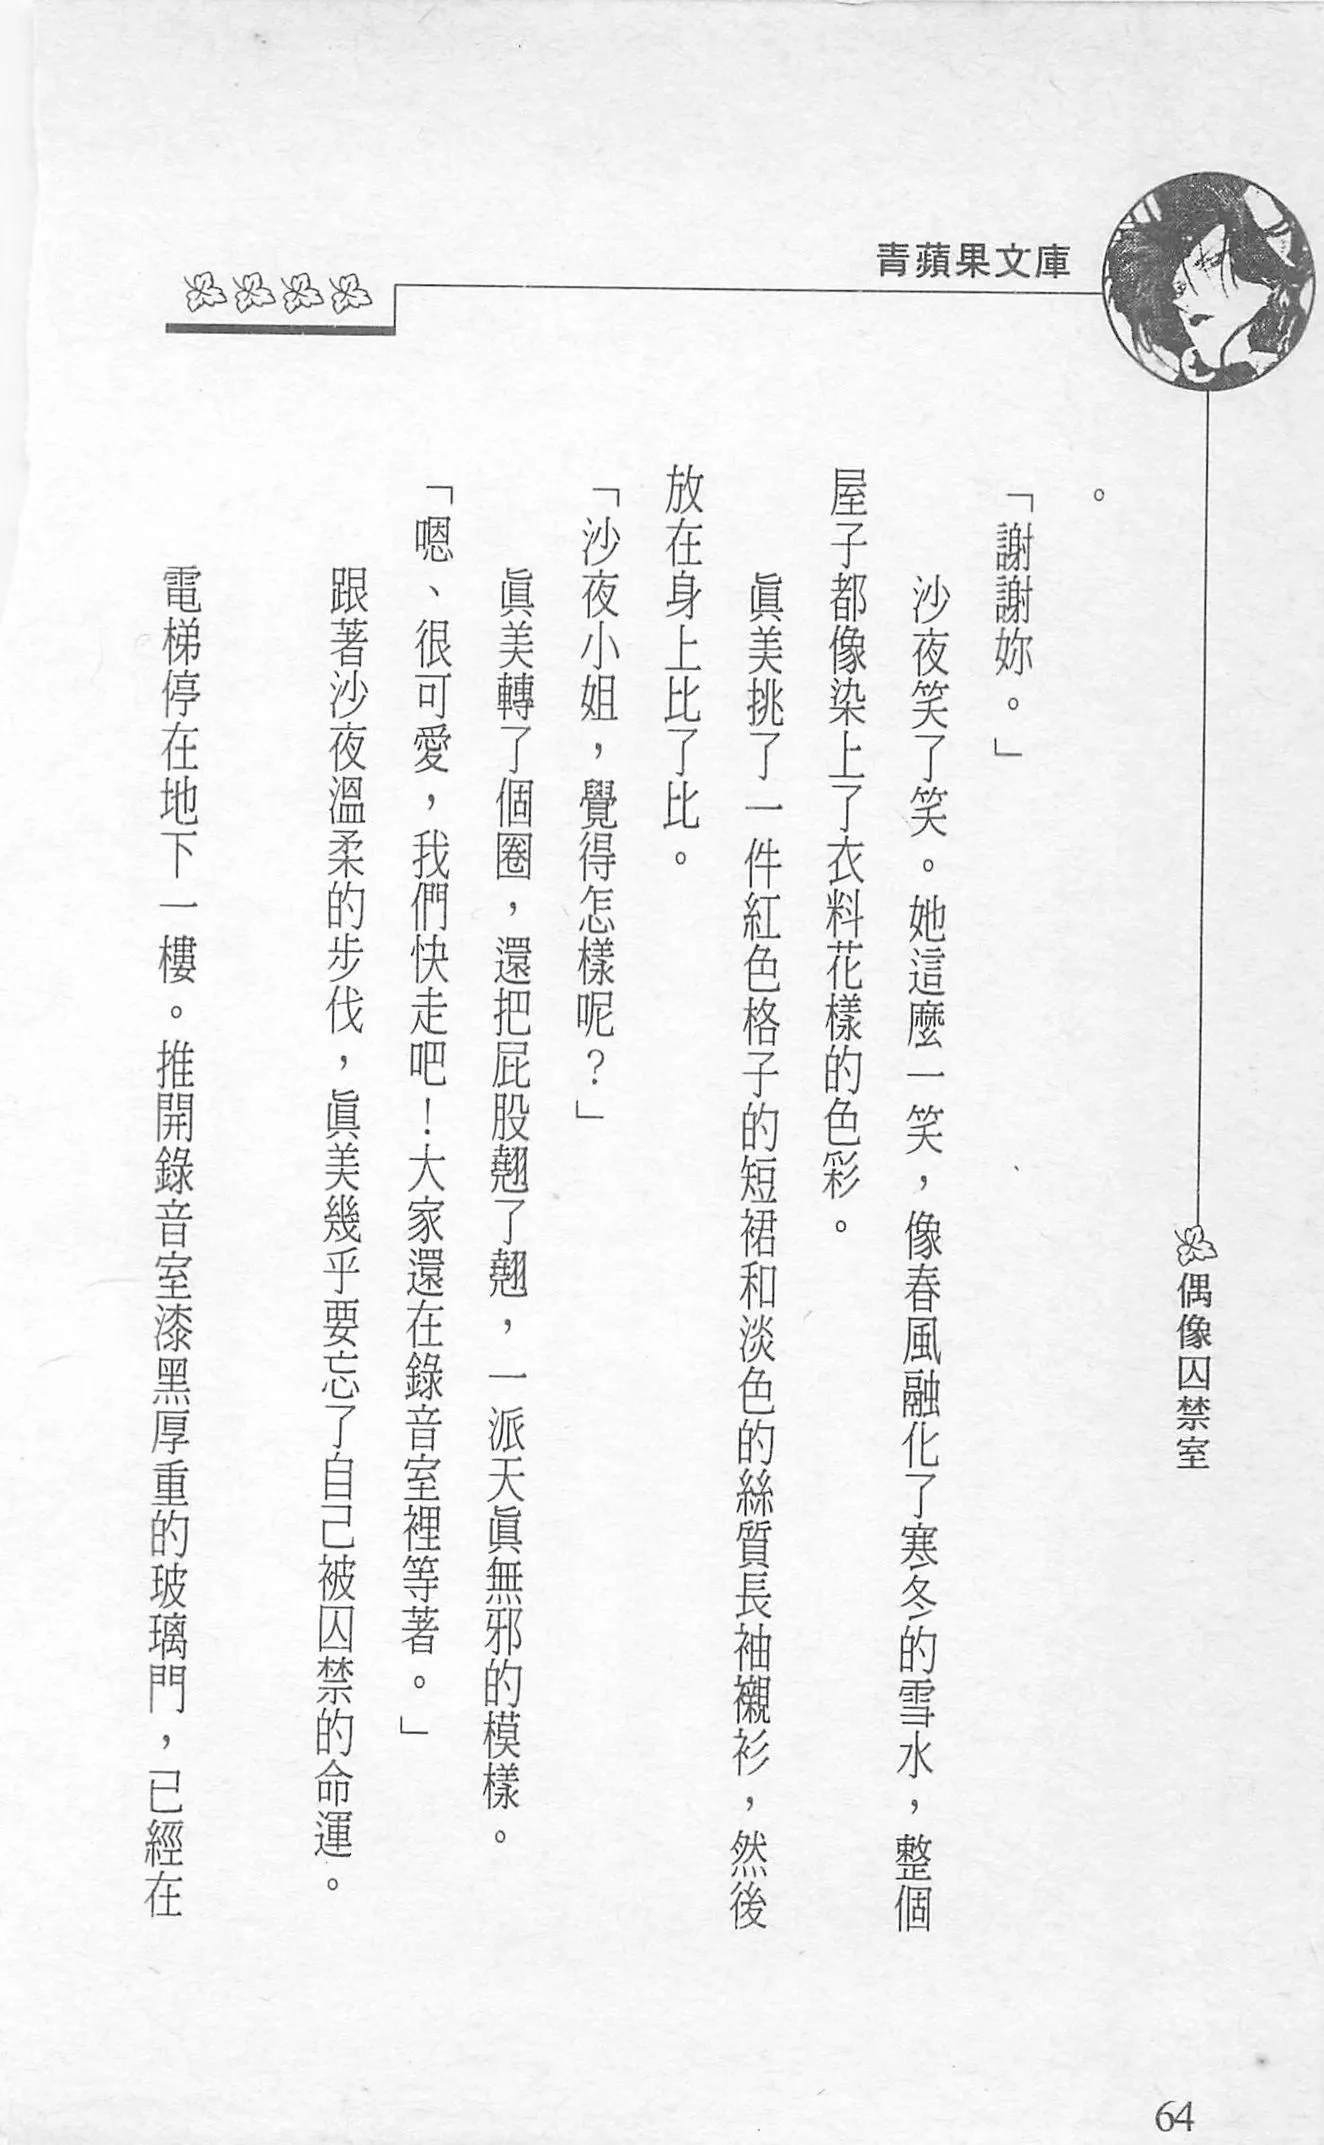 青蘋果文庫
偶像囚禁室
。
「謝謝妳。」
沙夜笑了笑。她這麼一笑，像春風融化了寒冬的雪水，整個
屋子都像染上了衣料花樣的色彩。
眞美挑了一件紅色格子的短裙和淡色的絲質長袖襯衫，然後
放在身上比了比。
「沙夜小姐，覺得怎樣呢？」
眞美轉了個圈，還把屁股翹了翹，一派天眞無邪的模樣。
「嗯、很可愛，我們快走吧！大家還在錄音室裡等著。」
跟著沙夜溫柔的步伐，眞美幾乎要忘了自己被囚禁的命運。
電梯停在地下一樓。推開錄音室漆黑厚重的玻璃門，已經在
64